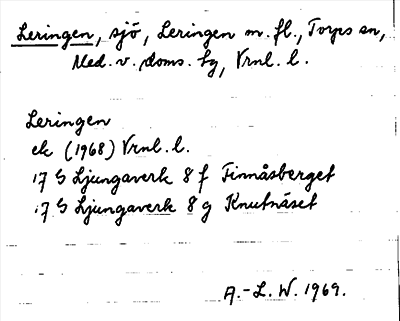 Leringen, sjö, Leringen m. fl., Torps sn,
Med. v. doms. hg, Vrnl. l.
Leringen
ek (1968) Vrnl. l.
17 G Ljungaverk 8 f Finnåsberget
17 G Ljungaverk 8 g Knutnäset
A.-L. W. 1969.